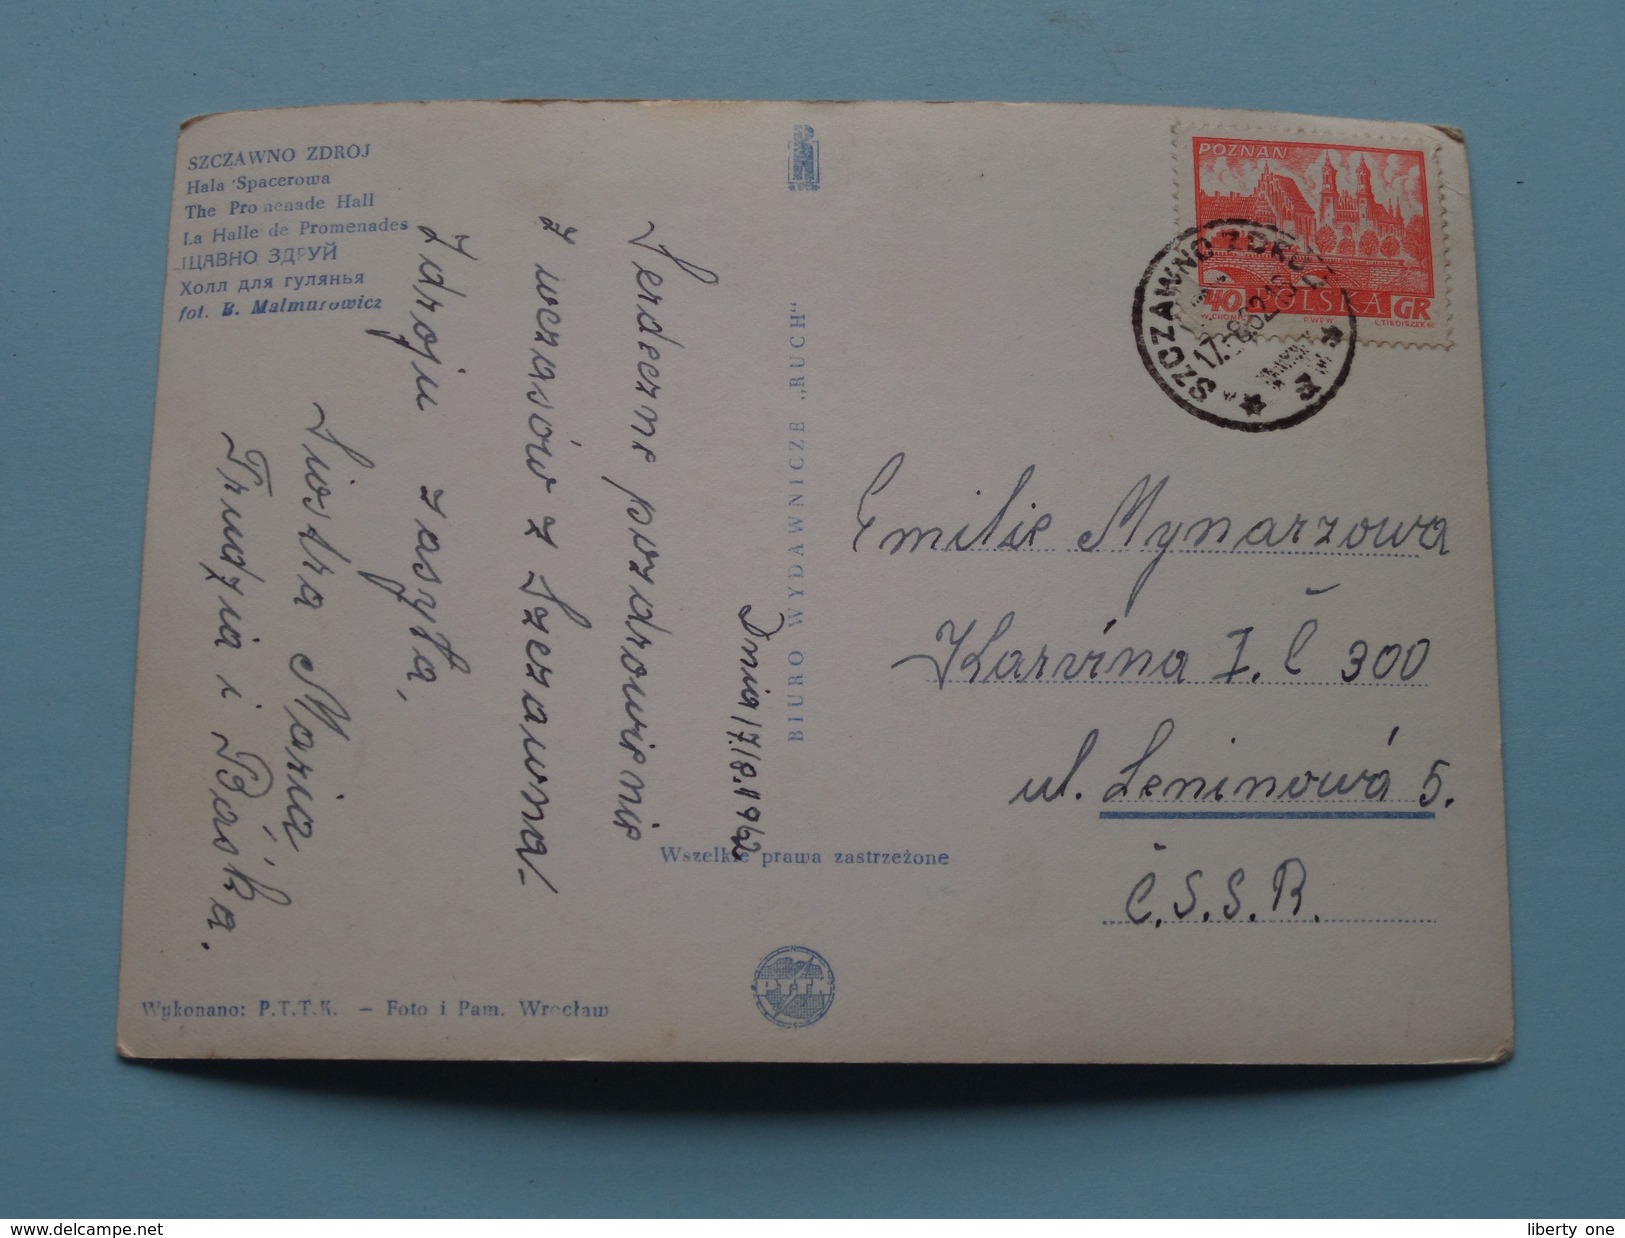 SZCZAWNO ZDROJ
Hala Spacerowa
The Promenade Hall
La Halle de Promenades
ЩАВНО ЗДРУЙ
Холл для гулянья
fot. B. Malmurowicz
Dnia 17.8.1962
Serdeczne pozdrowienie
z wczasów z Szczawna-
Zdroju zasyła,
Siostra Maria
Trudzia i Baśka.
BIURO WYDAWNICZE „RUCH"
Wszelkie prawa zastrzeżone
Wykonano: P.T.T.K. — Foto i Pam. Wrocław
PTTK
POZNAŃ
40 POLSKA GR
SZCZAWNO ZDRÓJ
17.-8.62
Emilie Mynarzowa
Karvína I. č 300
ul. Leninowá 5.
Č.S.S.R.
liberty one